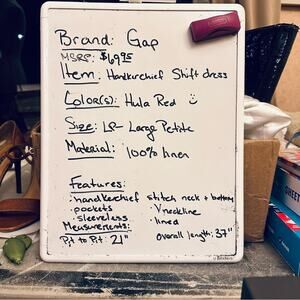 Brand: Gap
MSRP: $69.95
Item: Handkerchief Shift dress
Color(s): Hula Red ☺
Size: LP- Large Petite
Material: 100% linen
Features:
· handkerchief stitch neck + bottom
· pockets · V neckline
· sleeveless · lined
Measurements:
Pit to Pit: 21" overall length: 37"